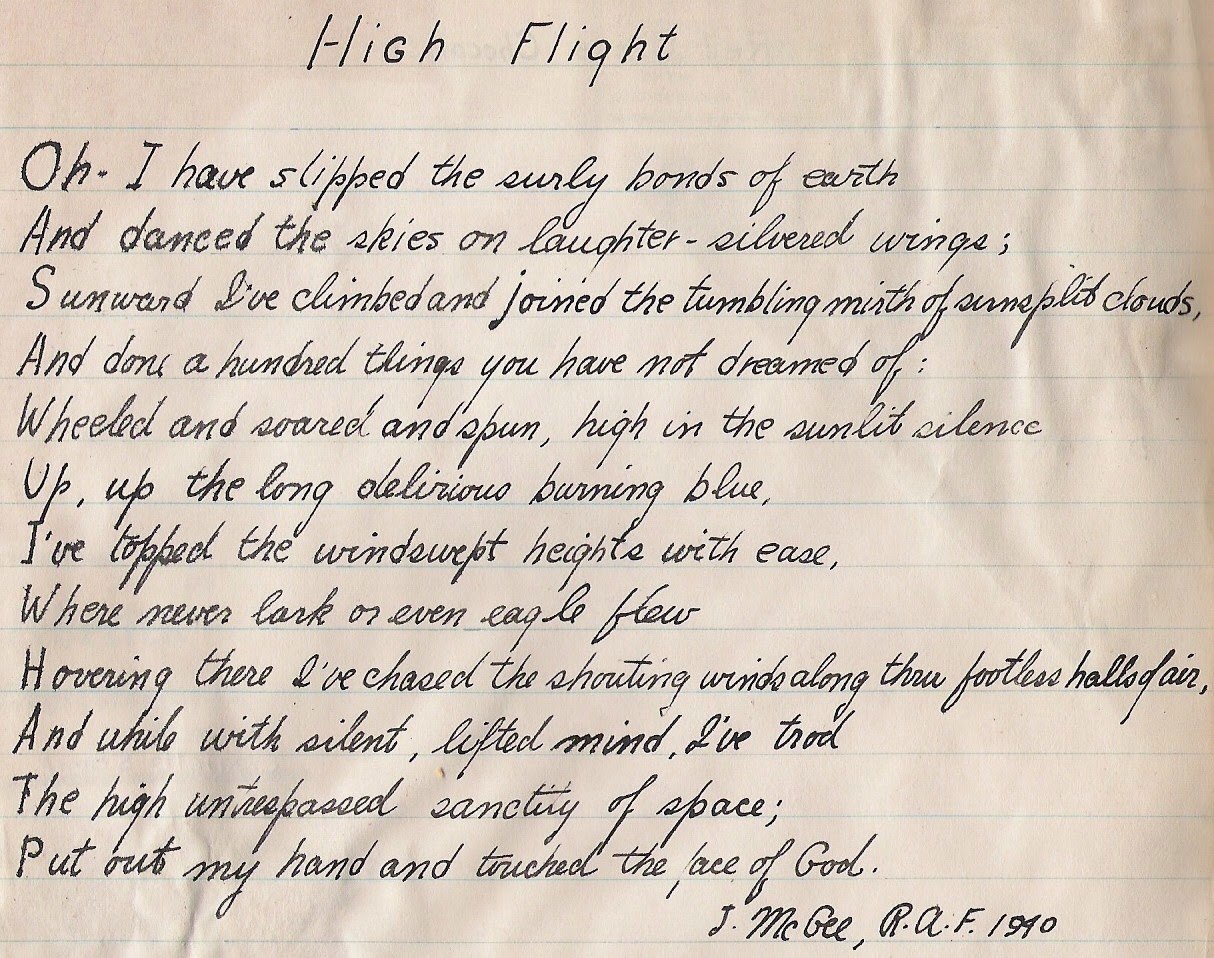 High Flight
Oh- I have slipped the surly bonds of earth
And danced the skies on laughter-silvered wings;
Sunward I've climbed and joined the tumbling mirth of sunsplit clouds,
And done a hundred things you have not dreamed of:
Wheeled and soared and spun, high in the sunlit silence
Up, up the long delirious burning blue,
I've topped the windswept heights with ease,
Where never lark or even eagle flew
Hovering there I've chased the shouting winds along thru footless halls of air,
And while with silent, lifted mind, I've trod
The high untrespassed sanctity of space;
Put out my hand and touched the face of God.
J. McGee, R.A.F. 1940